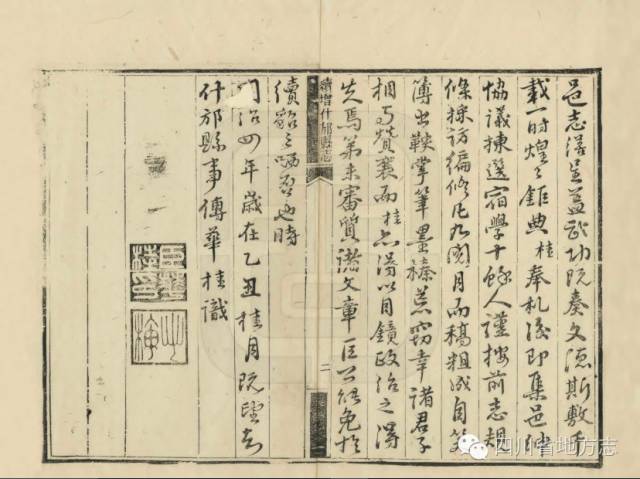 邑志漾呈蓋武功既奏文德斯敷千
載一時煌〻鉅典桂奉札後即集邑紳
協議揀選宿學十餘人謹按前志規
條採訪編修凡九閱月而稿粗成自笑
簿書鞅掌筆墨榛蕪竊幸諸君子
相与贊襄而桂亦得以目鏡政治之得
失焉第未審質諸文章巨公能免於
續增什邡縣志
二
續貂之哂否也時
同治四年歲在乙丑桂月既望知
什邡縣事傅華桂識
四川省地方志